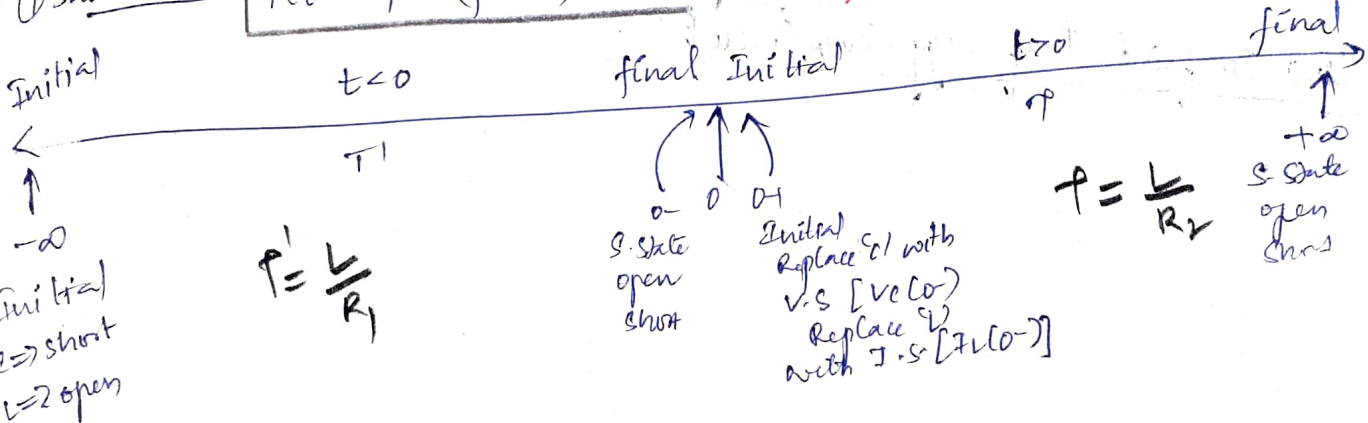 Initial t<0 final Initial t>0 final
T'
-∞ 0- 0 0+ +∞
Initial
=> short
L=> open
τ' = L/R1
S. State
open
short
Initial
Replace 'C' with
V.S [Vc(0-)
Replace 'L'
with I.S [IL(0-)]
τ
τ = L/R2
S. State
open
short